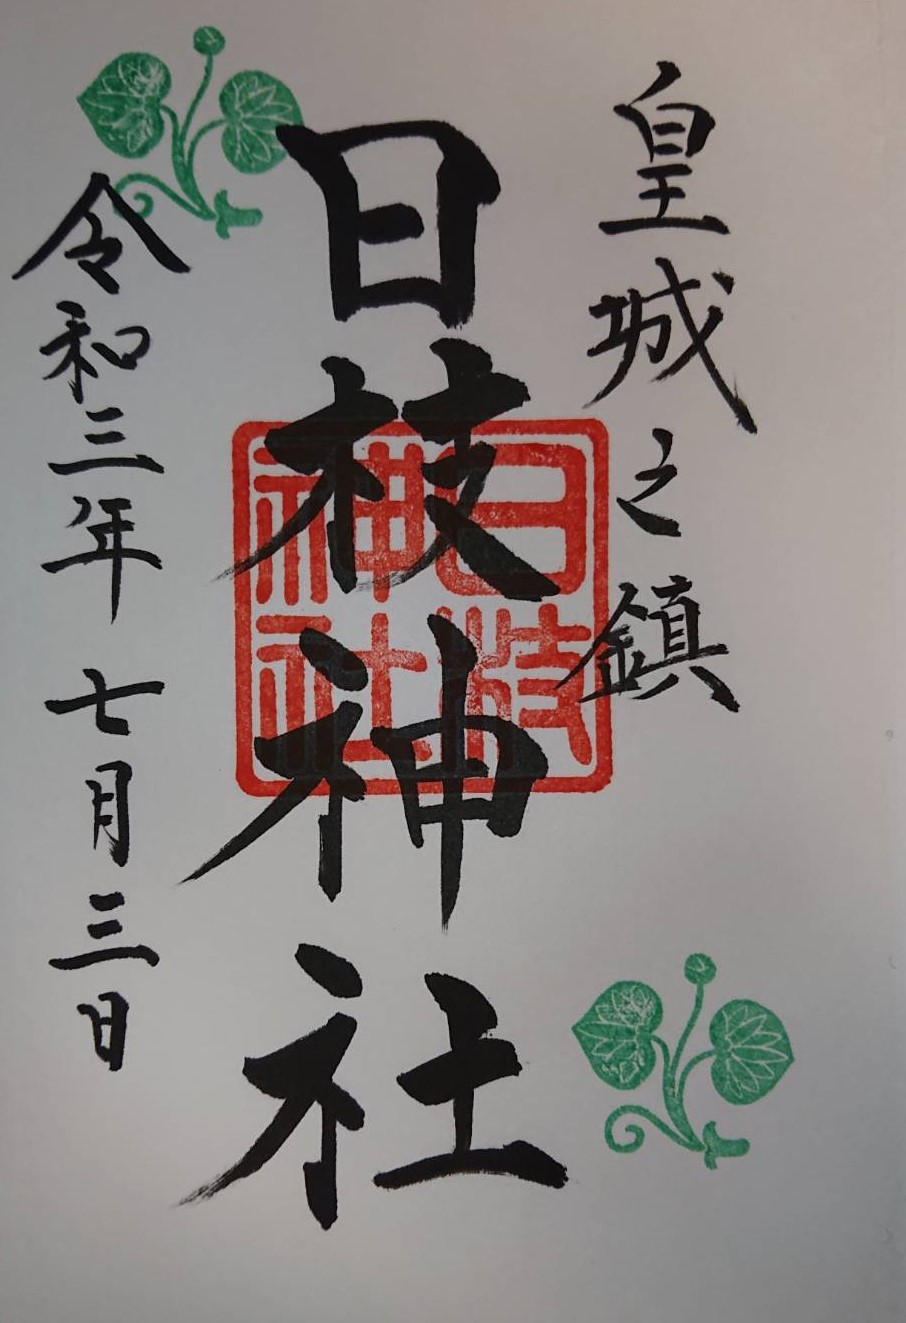 皇城之鎮
日枝神社
日枝神社
令和三年 七月三日